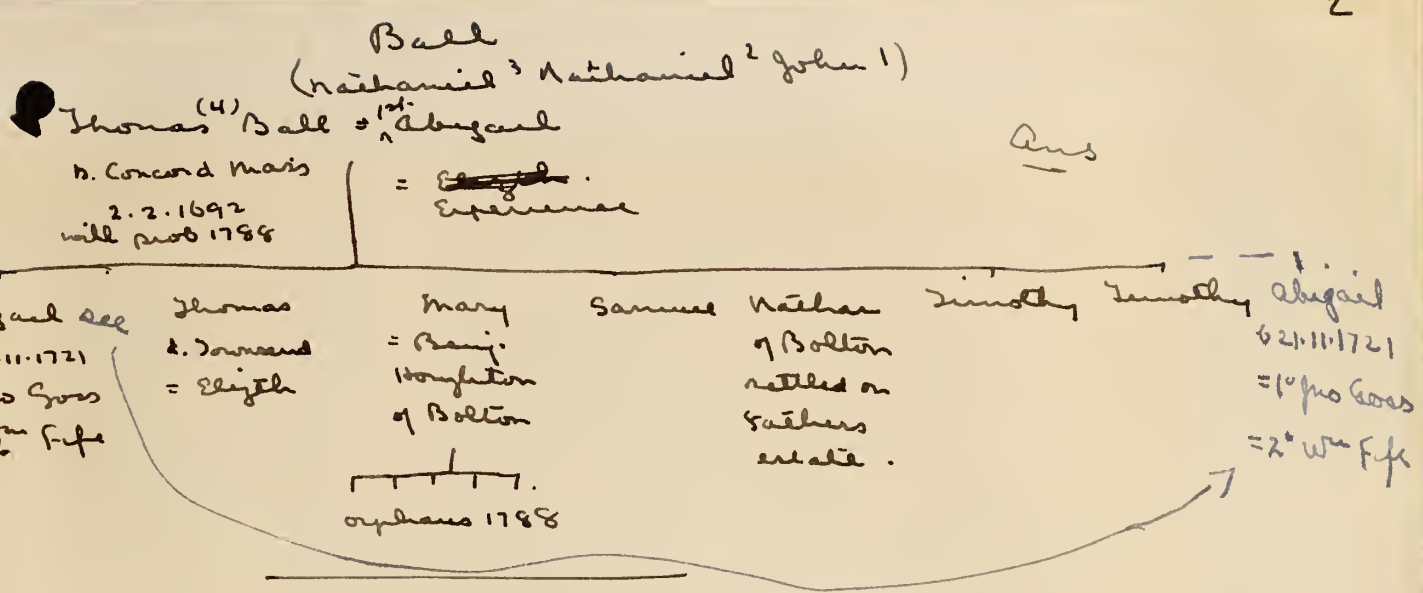 2
Ball
(Nathaniel 3 Nathaniel 2 John 1)
Thomas (4) Ball = 1st Abigail
b. Concord Mass
2.2.1692
will prob 1788
= Experience
Ans
gail see
.11.1721
o Goss
m Fife
Thomas
d. Townsend
= Elizth
Mary
= Benj.
Houghton
of Bolton
orphans 1788
Samuel
Nathan
of Bolton
settled on
fathers
estate.
Timothy
Timothy
Abigail
b 21.11.1721
= 1º Jno Goss
= 2º Wm Fife